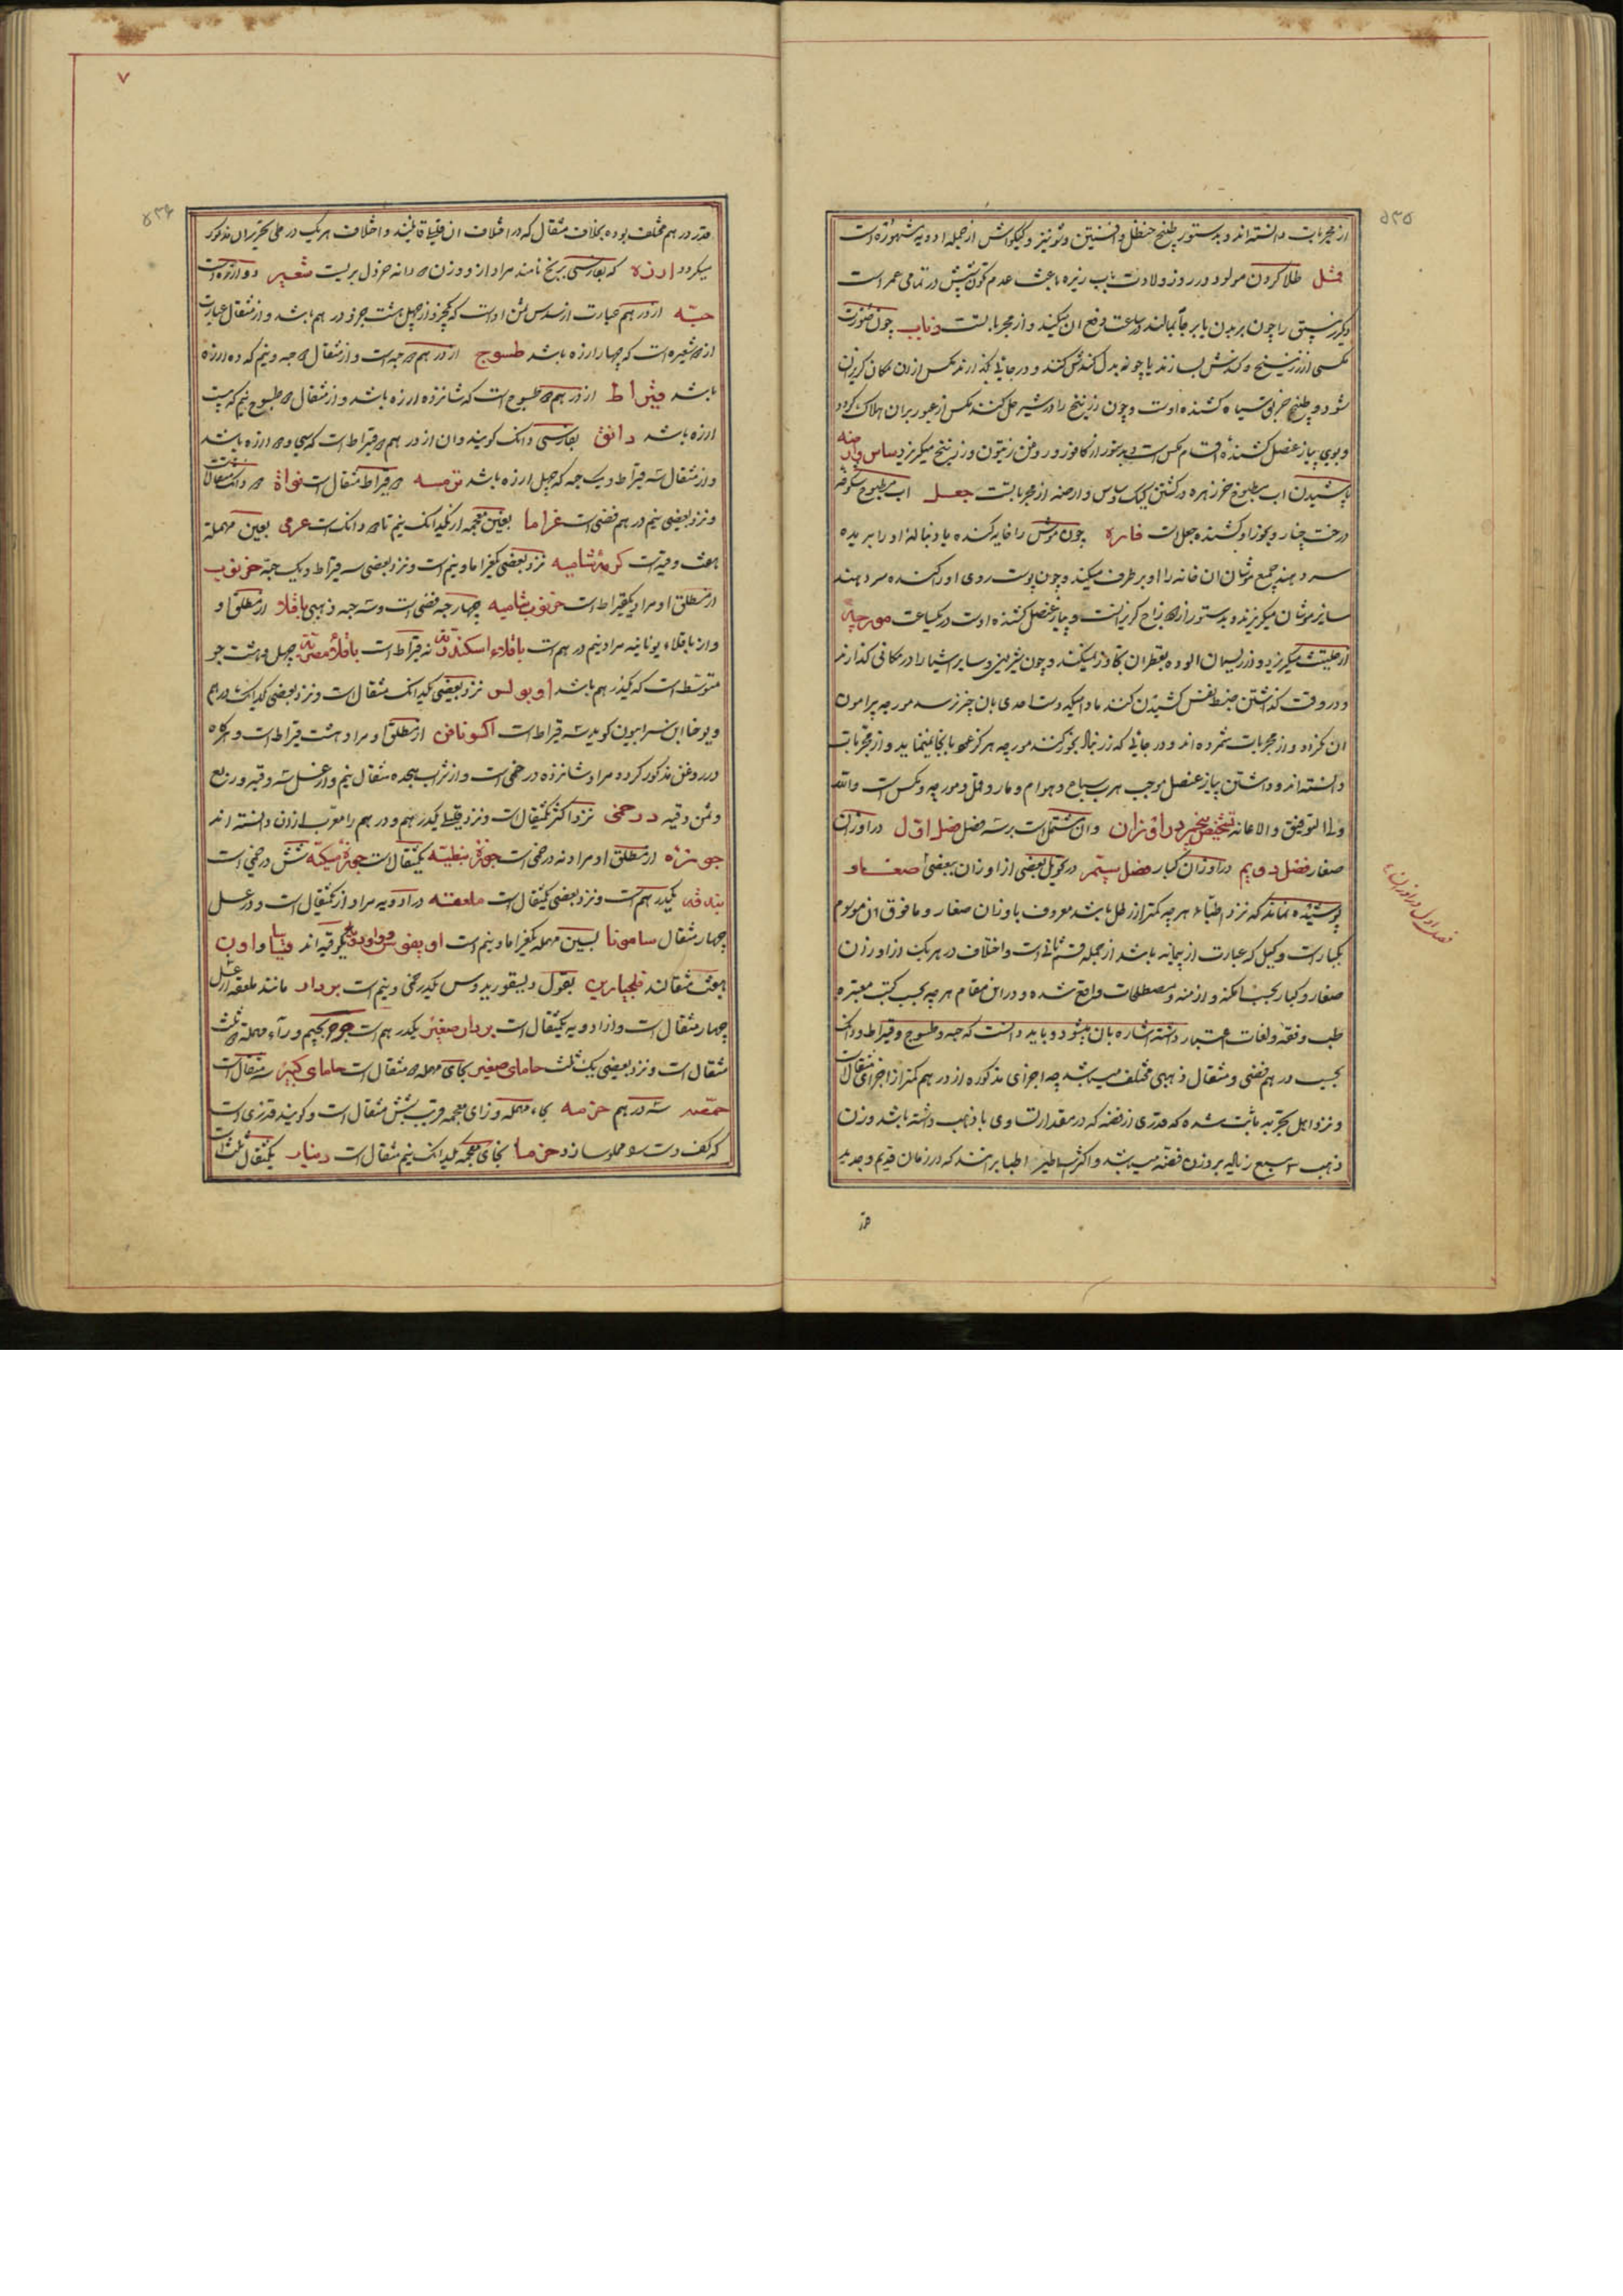 ۵۳۵
از مجربات دانسته‌اند و بدستور طبیخ حنظل و افسنتین و شونیز و کیکواش از جمله ادویه مشهوره است
قمل طلا کردن مولود در روز ولادت بآب زیره باعث عدم تکون شپش در تمامی عمر است
و چون زیبق را چون بر بدن یا بر جامه بمالند در ساعت دفع آن میکند و از مجربات است ذباب چون صورت
مکسی از زرنیخ و کندش بسازند یا چونه بدل کندش کنند و در جائی بگذارند مکس از آن مکان گریزان
شود و طبیخ خربق سیاه کشنده اوست و چون زرنیخ را در شیر حل کنند مکس از عبور بر آن هلاک گردد
و بوی پیاز عنصل کشنده اقسام مکس است و بدستور از کافور و روغن زیتون و زرنیخ میگریزد ساس وارضه
پاشیدن آب مطبوخ خرزهره در کشتن کیک و ساس و ارضه از مجربات است جعل آب مطبوخ شکوفه
درخت چنار و بخور او کشنده جعل است فاره چون موش را خایه کنده یا دنباله او را بریده
سر دهند جمیع موشان آن خانه را او بر طرف میکند و چون پوست روی او را کنده سر دهند
سایر موشان میگریزند و بدستور از زاج گریزانست و پیاز عنصل کشنده اوست در یکساعت مورچه
از حلتیت میگریزد و از ریسمان آلوده بقطران تجاوز نمیکند و چون شیرینی و سایر اشیا را در مکانی گذارند
و در وقت گذاشتن ضبط نفس کشیدن کنند مادامیکه دست احدی بان چیز نرسد مورچه پیرامون
آن نگردد و از مجربات شمرده‌اند و در جائی که زرنباد بخور کنند مورچه هرگز عود بانجا نمینماید و از مجربات
دانسته‌اند و داشتن پیاز عنصل موجب هرب سباع و هوام و مار و قمل و مورچه و مکس است والله
ولی التوفیق والاعانه تشخیص پنجم در اوزان و آن مشتمل است بر سه فصل فصل اول در اوزان
صغار فصل دویم در اوزان کبار فصل سیم در تحویل بعضی از اوزان ببعضی صغار
پوشیده نماند که نزد اطباء هر چه کمتر از رطل باشد معروف باوزان صغار و ما فوق آن موسوم
بکبار است و کیل که عبارت از پیمانه باشد از جمله قسم ثانی است و اختلاف در هر یک از اوزان
صغار و کبار بحسب امکنه و ازمنه و مصطلحات واقع شده و در این مقام هر چه بحسب کتب معتبره
طب و فقه و لغات اعتبار داشته اشاره بان میشود و باید دانست که حبه و طسوج و قیراط و دانک
بحسب درهم فضی و مثقال ذهبی مختلف میباشد چه اجزای مذکوره از درهم کمتر از اجزای مثقال است
و نزد اهل تجربه ثابت شده که قدری از فضه که در مقدار تساوی با ذهب داشته باشد وزن
ذهب سه سبع زیاده بر وزن فضه میباشد و اکثر اساطین اطبا بر آنند که در زمان قدیم و جدید
فصل اول در اوزان
قد
۷
۵۳۶
قدر درهم مختلف بوده بخلاف مثقال که در اختلاف آن قلیلی قائلند و اختلاف هر یک در طی تحریر آن مذکور
میگردد ارزه که بفارسی برنج نامند مراد از او وزن دو دانه خردل بریست شعیر دو ارزه است
حبه از درهم عبارت از سدس ثمن اوست که یکجزو از چهل و هشت جزو درهم باشد و از مثقال عبارت
از شعیره است که چهار ارزه باشد طسوج از درهم دو حبه است و از مثقال دو حبه و نیم که ده ارزه
باشد قیراط از درهم دو طسوج است که شانزده ارزه باشد و از مثقال دو طسوج و نیم که بیست
ارزه باشد دانق بفارسی دانک گویند و آن از درهم دو قیراط است که سی و دو ارزه باشد
و از مثقال سه قیراط و یک حبه که چهل ارزه باشد ترمسه دو قیراط مثقال است نواة دو دانک مثقال است
و نزد بعضی نیم درهم فضی است غراما بغین معجمه از یکدانک و نیم تا دو دانک است عرمی بعین مهمله
هفت وقیه است کرمه شامیه نزد بعضی یکغراما و نیم است و نزد بعضی سه قیراط و یک حبه خرنوب
از مطلق او مراد یکقیراط است خرنوب شامیه چهار حبه فضی است و سه حبه ذهبی باقلا از مطلق او
و از باقلاء یونانیه مراد نیم درهم است باقلاء اسکندریه نه قیراط است باقلاء مصریه چهل و هشت جو
متوسط است که یکدرهم باشد اوبولس نزد بعضی یکدانک مثقال است و نزد بعضی یکدانک درهم
و یوحنا ابن سرابیون گوید سه قیراط است اکسونافن از مطلق او مراد هشت قیراط است و هرگاه
در روغن مذکور گردد مراد شانزده درخمی است و از شراب هجده مثقال و نیم و از عسل سه وقیه و ربع
و ثمن وقیه درخمی نزد اکثر یکمثقال است و نزد قلیلی یکدرهم و درهم را معرب از آن دانسته‌اند
جوزه از مطلق او مراد نه درخمی است جوزه نبطیه یکمثقال است جوزه ملکیه شش درخمی است
بندقه یکدرهم است و نزد بعضی یکمثقال است ملعقه در ادویه مراد از یکمثقال است و در عسل
چهار مثقال سامونا بسین مهمله یکغراما و نیم است
هفت مثقالند فلنجارین بقول دیسقوریدوس یکدرخمی و نیم است بردار مانند ملعقه از عسل
چهار مثقال است و از ادویه یکمثقال است بردار صغیر یکدرهم است جرجر بجیم و راء مهمله دو ثلث
مثقال است و نزد بعضی یک ثلث حامای صغیر بحای مهمله دو مثقال است حامای کبیر سه مثقال است
حمصه سه درهم حزمه بحاء مهمله و زای معجمه قریب بشش مثقال است و گویند قدری است
که کف دست را مملو سازد خرما بخای معجمه یکدانک و نیم مثقال است دینار یکمثقال